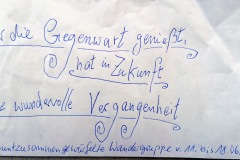 die Gegenwart genießt,
hat in Zukunft
wundervolle Vergangenheit
zusammengewürfelte Wandergruppe v. 11. bis